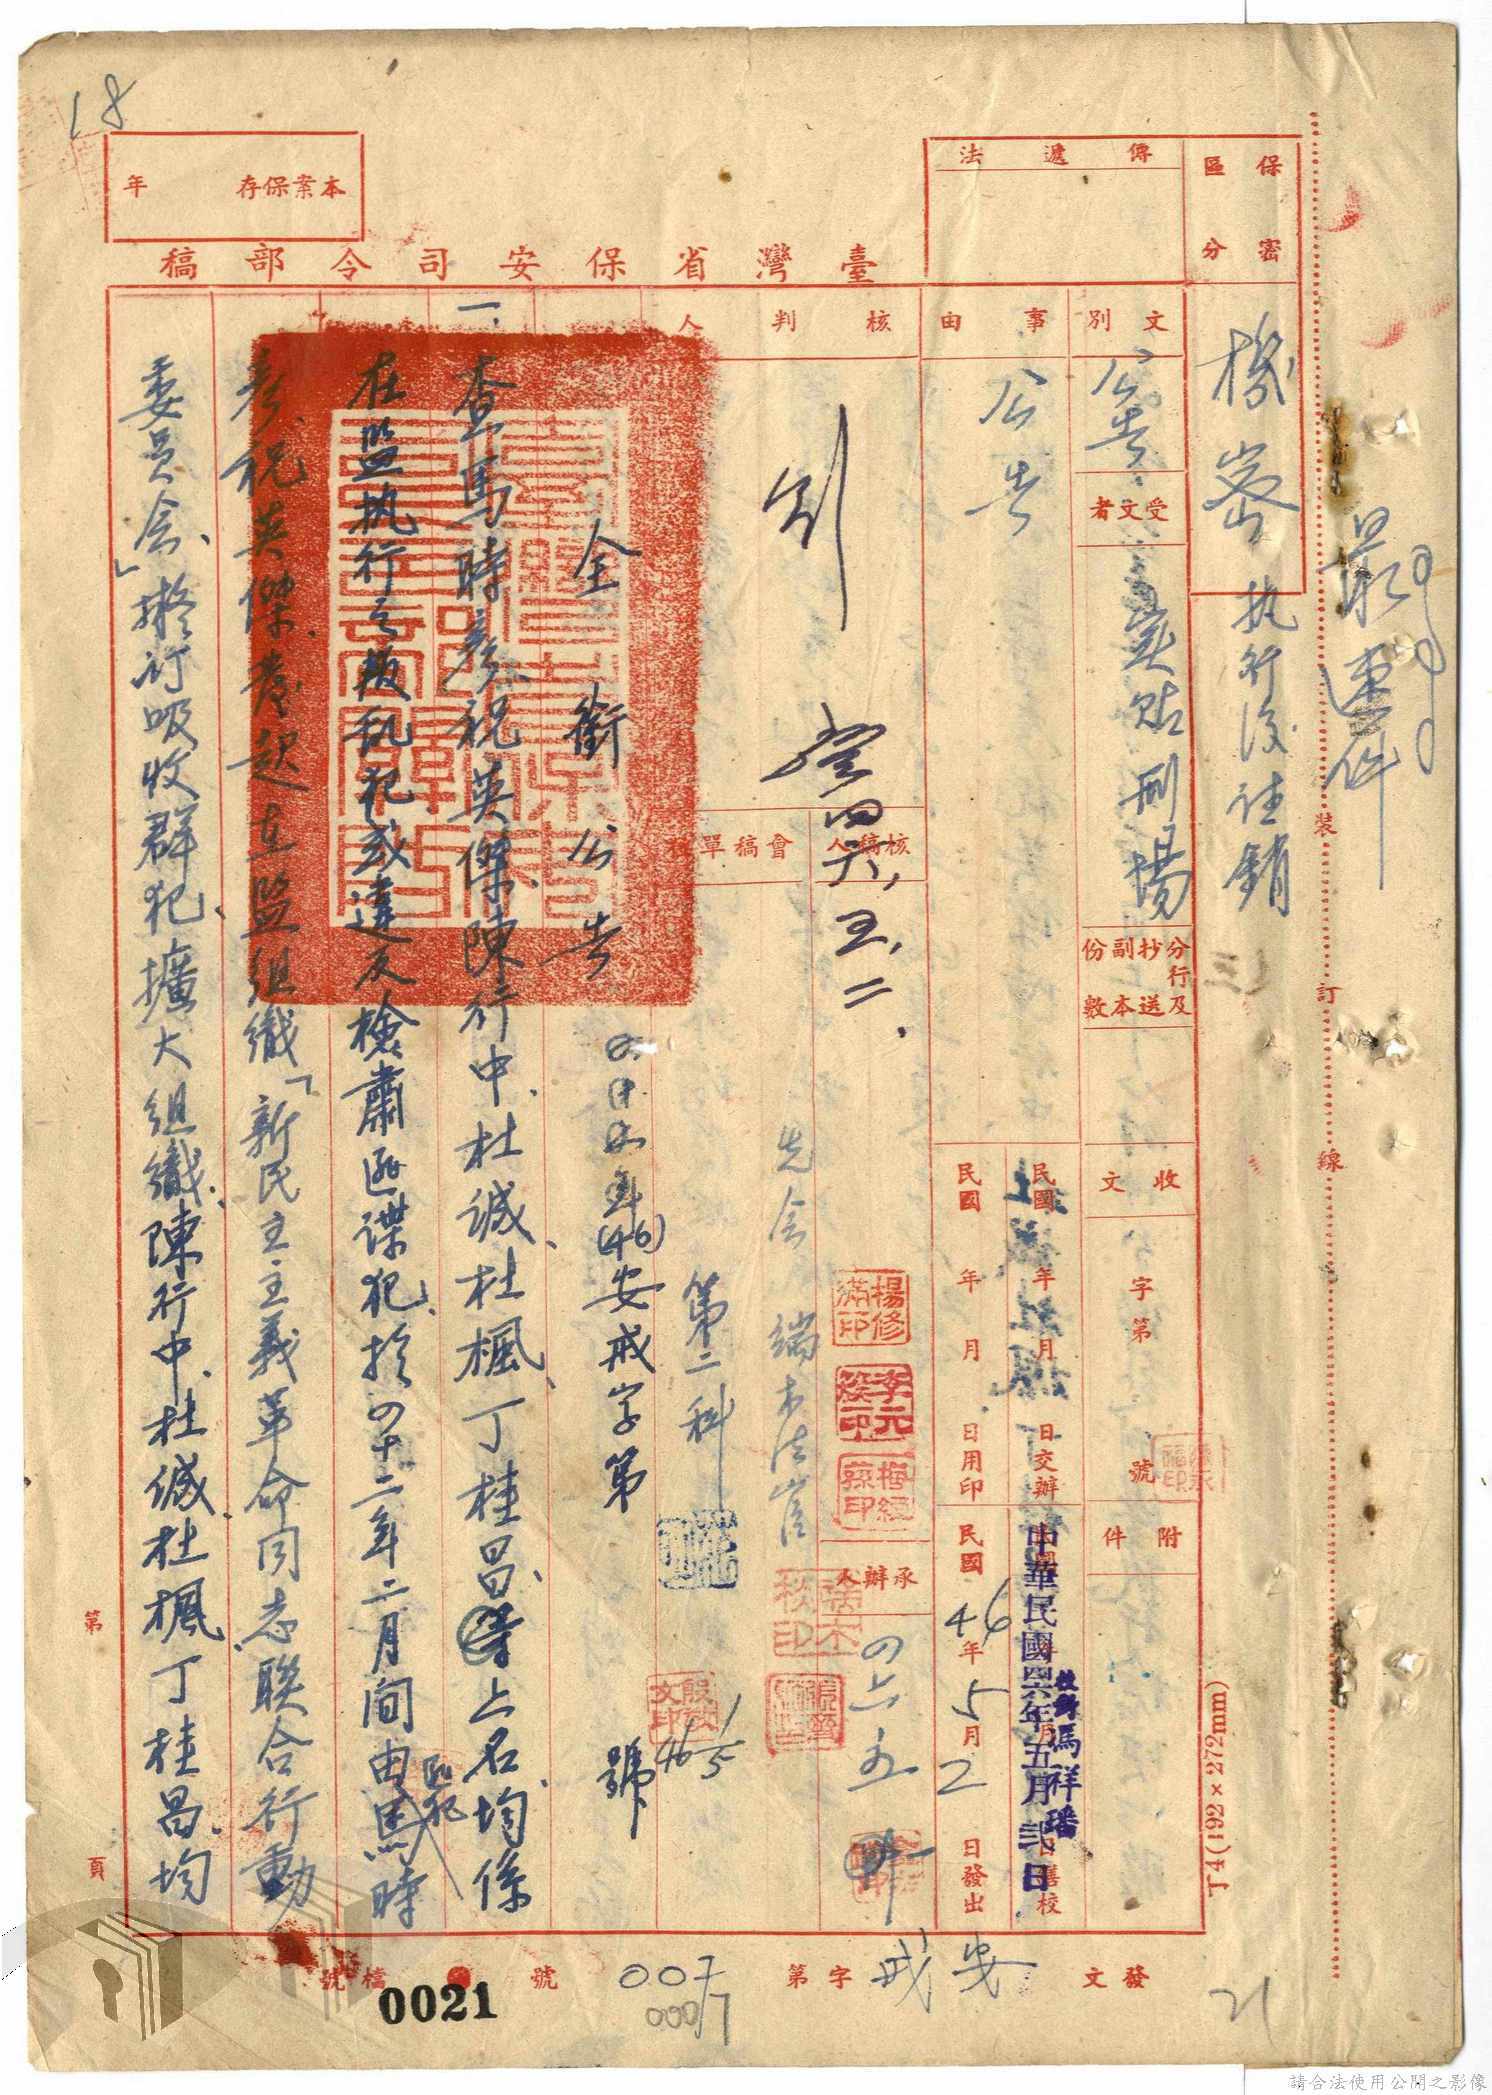 18
最速件
保密
區分
機密
执行後註銷
傳遞法
本案保存　　年
臺灣省保安司令部稿
文別
公告
受文者
實貼刑場
分行及抄送副本份數
收文
字第　　號
附件
事由
公告
民國　年　月　日交辦
中華民國四六年五月弍日
校對馮祥璠
繕校
民國　年　月　日用印
民國46年5月2日發出
核判人
四六,五,二,
核稿人
楊修
承辦人
四六五
會稿單位
先會
第二科
46 1/5
全銜公告
四六年(46)安戒字第　　號
一、查馬時彥祝英傑陳行中、杜誠、杜楓、丁桂昌、等上名均係
在監执行之叛乱犯或違反檢肅匪諜犯、於四十二年二月间由馬時
彥、祝英傑、發起在監組織「新民主主義革命同志聯合行動
委員会、」擬訂吸收群犯、擴大組織、陳行中、杜誠、杜楓、丁桂昌、均
裝
訂
線
T4(192×272mm)
第　　頁
發文
安戒字第007號
0007
檔號
0021
21
請合法使用公開之影像